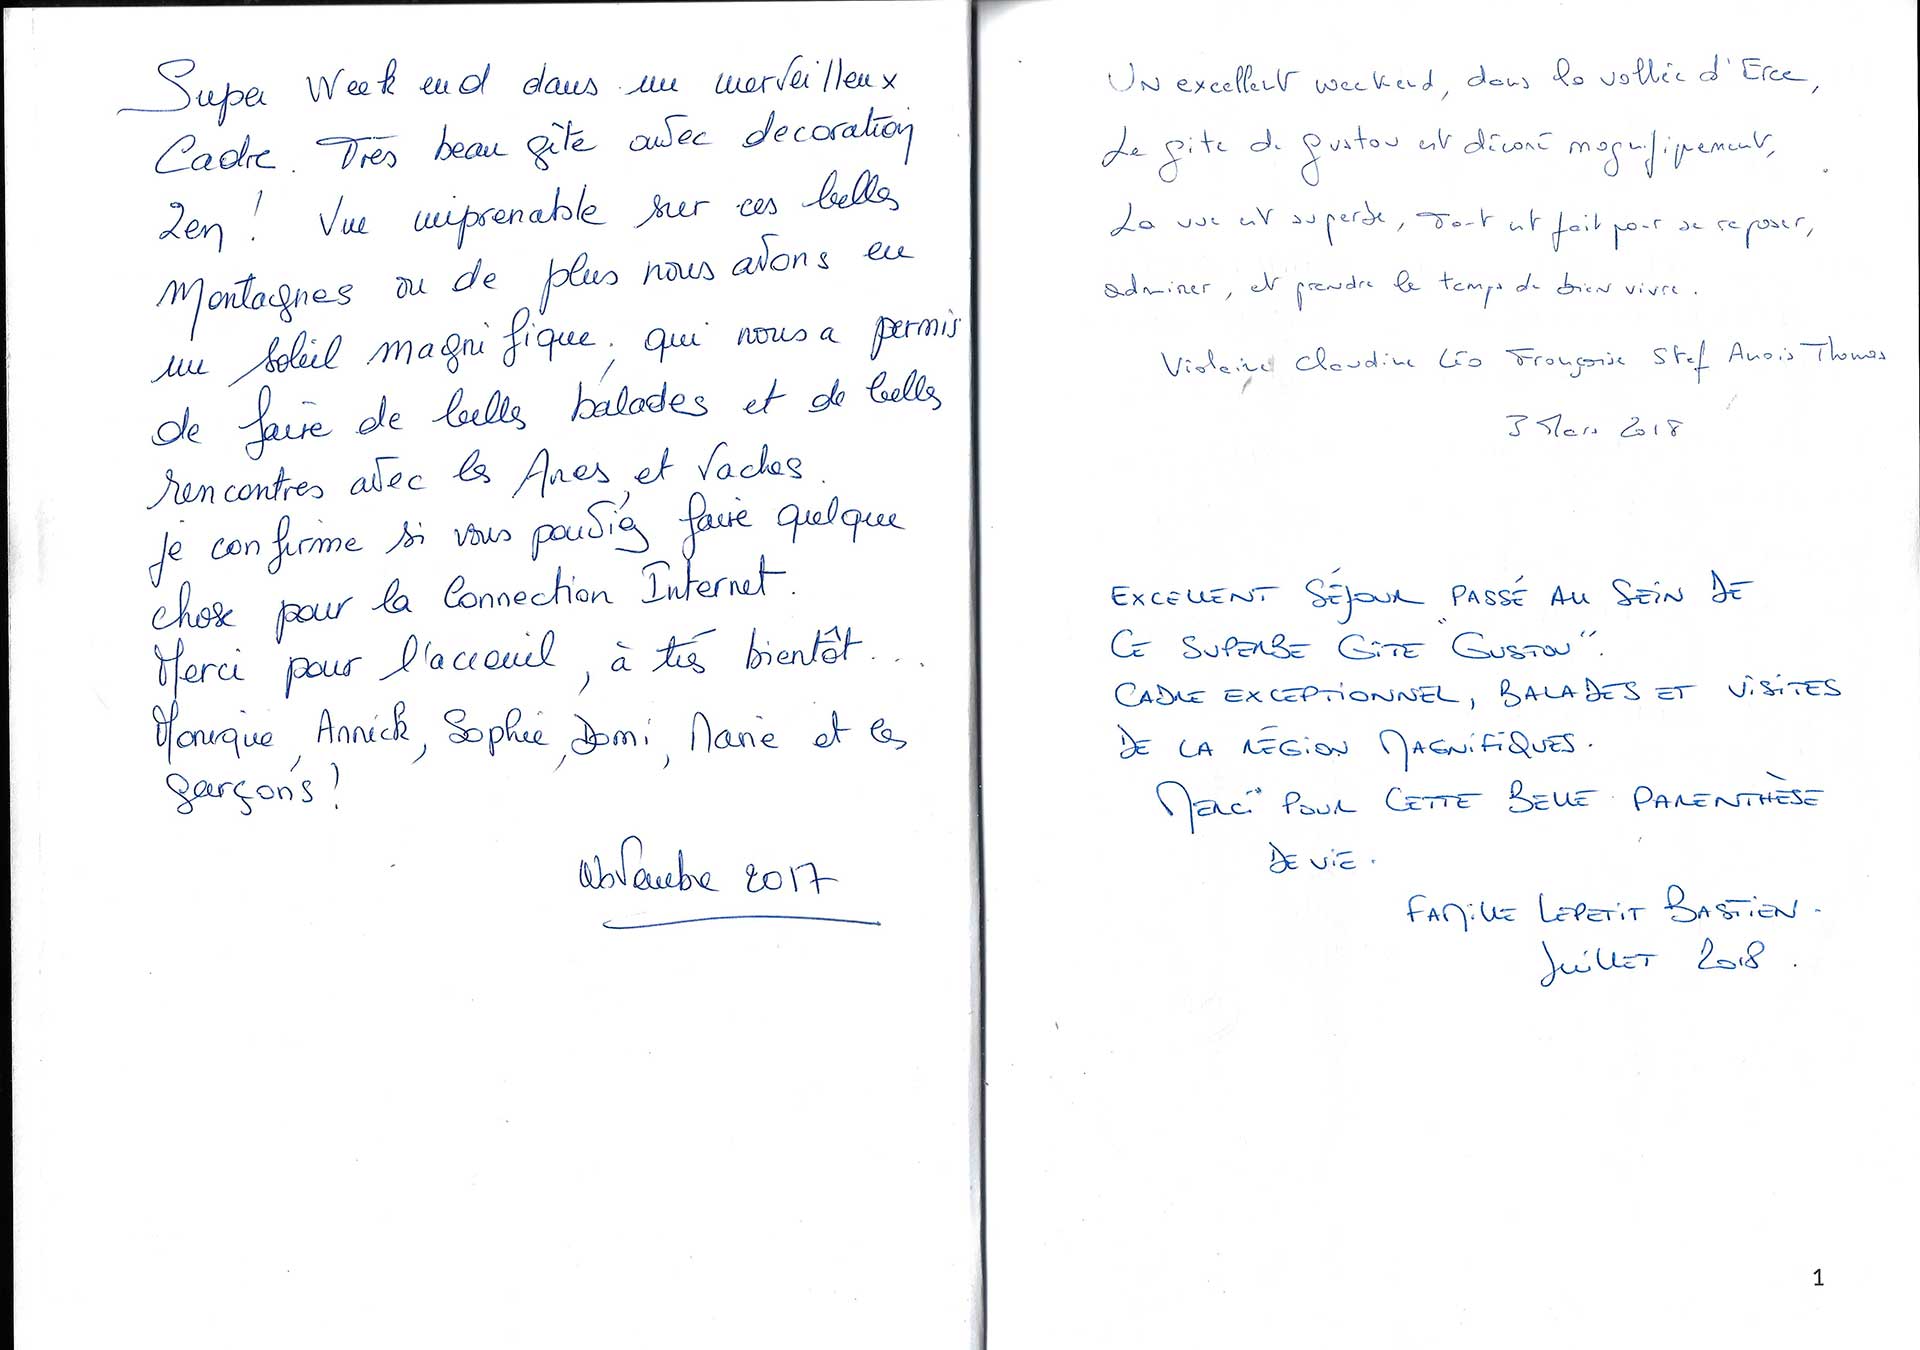 Super Week end dans un merveilleux
Cadre. Très beau gîte avec decoration
Zen! Vue imprenable sur ces belles
Montagnes ou de plus nous avons eu
un soleil magnifique, qui nous a permis
de faire de belles balades et de belles
rencontres avec les Anes et Vaches.
je confirme si vous pouviez faire quelque
chose pour la Connection Internet.
Merci pour l'acceuil, à très bientôt...
Monique, Annick, Sophie, Domi, Marie et les
garçons!
Novembre 2017
Un excellent weekend, dans la vallée d'Erce,
Le gite de gustou est décoré magnifiquement,
La vue est superbe, Tout est fait pour se reposer,
admirer, et prendre le temps de bien vivre.
Violaine Claudine Léo Françoise Stef Anaïs Thomas
3 Mars 2018
EXCELLENT SÉJOUR PASSÉ AU SEIN DE
CE SUPERBE GÎTE "GUSTOU".
CADRE EXCEPTIONNEL, BALADES ET VISITES
DE LA RÉGION MAGNIFIQUES.
MERCI POUR CETTE BELLE PARENTHÈSE
DE VIE.
FAMILLE LEPETIT BASTIEN.
JUILLET 2018.
1